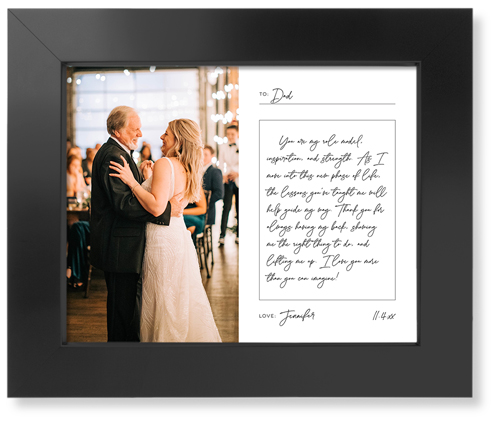 TO: Dad
You are my role model,
inspiration, and strength. As I
move into this new phase of life,
the lessons you've taught me will
help guide my way. Thank you for
always having my back, showing
me the right thing to do, and
lifting me up. I love you more
than you can imagine!
LOVE: Jennifer 11.4.xx